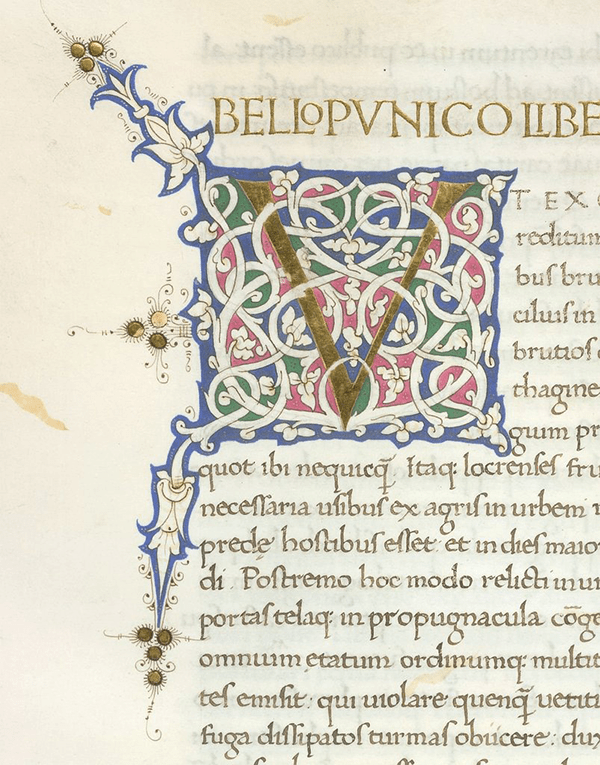 BELLO PVNICO LIBE
V
TEX
reditum
bus bru
cilius in
brutios
thagine
gium pr
quot ibi nequicq̄. Itaq: locrenses fru
necessaria usibus ex agris in urbem
predę hostibus esset: et in dies maio
di. Postremo hoc modo relicti in ur
portas telaq: in propugnacula cōge
omnium etatum ordinumq: multit
tes emisit: qui uiolare quenq̄ uetiti
fuga dissipatos turmas obiicere: dux